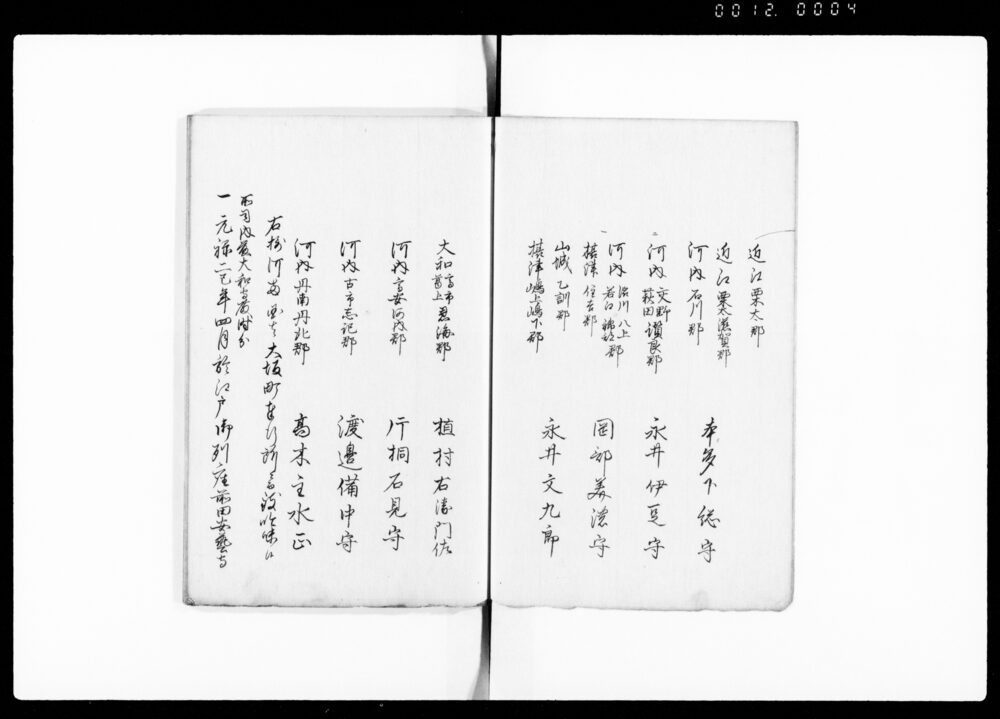 0012.0004
近江栗太郡
近江栗太滋賀郡
河内石川郡
本多下総守
河内交野讃良郡
茨田
永井伊豆守
河内渋川八上郡
若江錦部
摂津住吉郡
岡部美濃守
山城乙訓郡
摂津嶋上嶋下郡
永井文九郎
大和高市忍海郡
葛上
植村右衛門佐
河内高安河内郡
片桐石見守
河内古市志記郡
渡邉備中守
河内丹南丹北郡
高木主水正
右摂河両 大坂町奉行所 吟味
内 大和
一元禄二巳年四月於江戸御列座前田安藝守